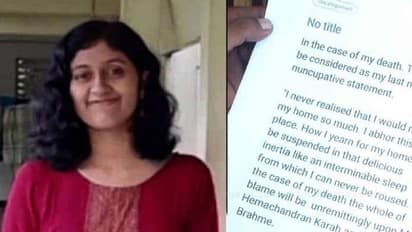 No title
In the case of my death. T
be considered as my last
nuncupative statement.
"I never realised that I would
my home so much. I abhor this
place. How I yearn for my home
be suspended in that delicious
inertia like an interminable sleep
from which I can never be roused.
the case of my death the whole of
blame will be unremittingly upon
Hemachandran Karah a
Brahme.